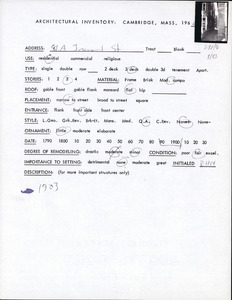 ARCHITECTURAL INVENTORY: CAMBRIDGE, MASS, 196
ADDRESS: 91A Tremont St Tract Block
USE: residential commercial religious
TYPE: single double row 2 deck 3 deck double 3d tenement Apart.
STORIES: 1 2 3 4 MATERIAL: Frame Brick Mod.
ROOF: gable front gable flank mansard flat hip
PLACEMENT: narrow to street broad to street square
ENTRANCE: flank front side front center
STYLE: L.Geo. Grk.Rev. Brkt. Mans. Med. Q.A. C.Rev. None
ORNAMENT: little moderate elaborate
DATE: 1790 1800 10 20 30 40 50 60 70 80 90 1900 10 20 30
DEGREE OF REMODELING: drastic moderate minor CONDITION: poor fair excel.
IMPORTANCE TO SETTING: detrimental none moderate great INITIALED
DESCRIPTION: (for more important structures only)
1903